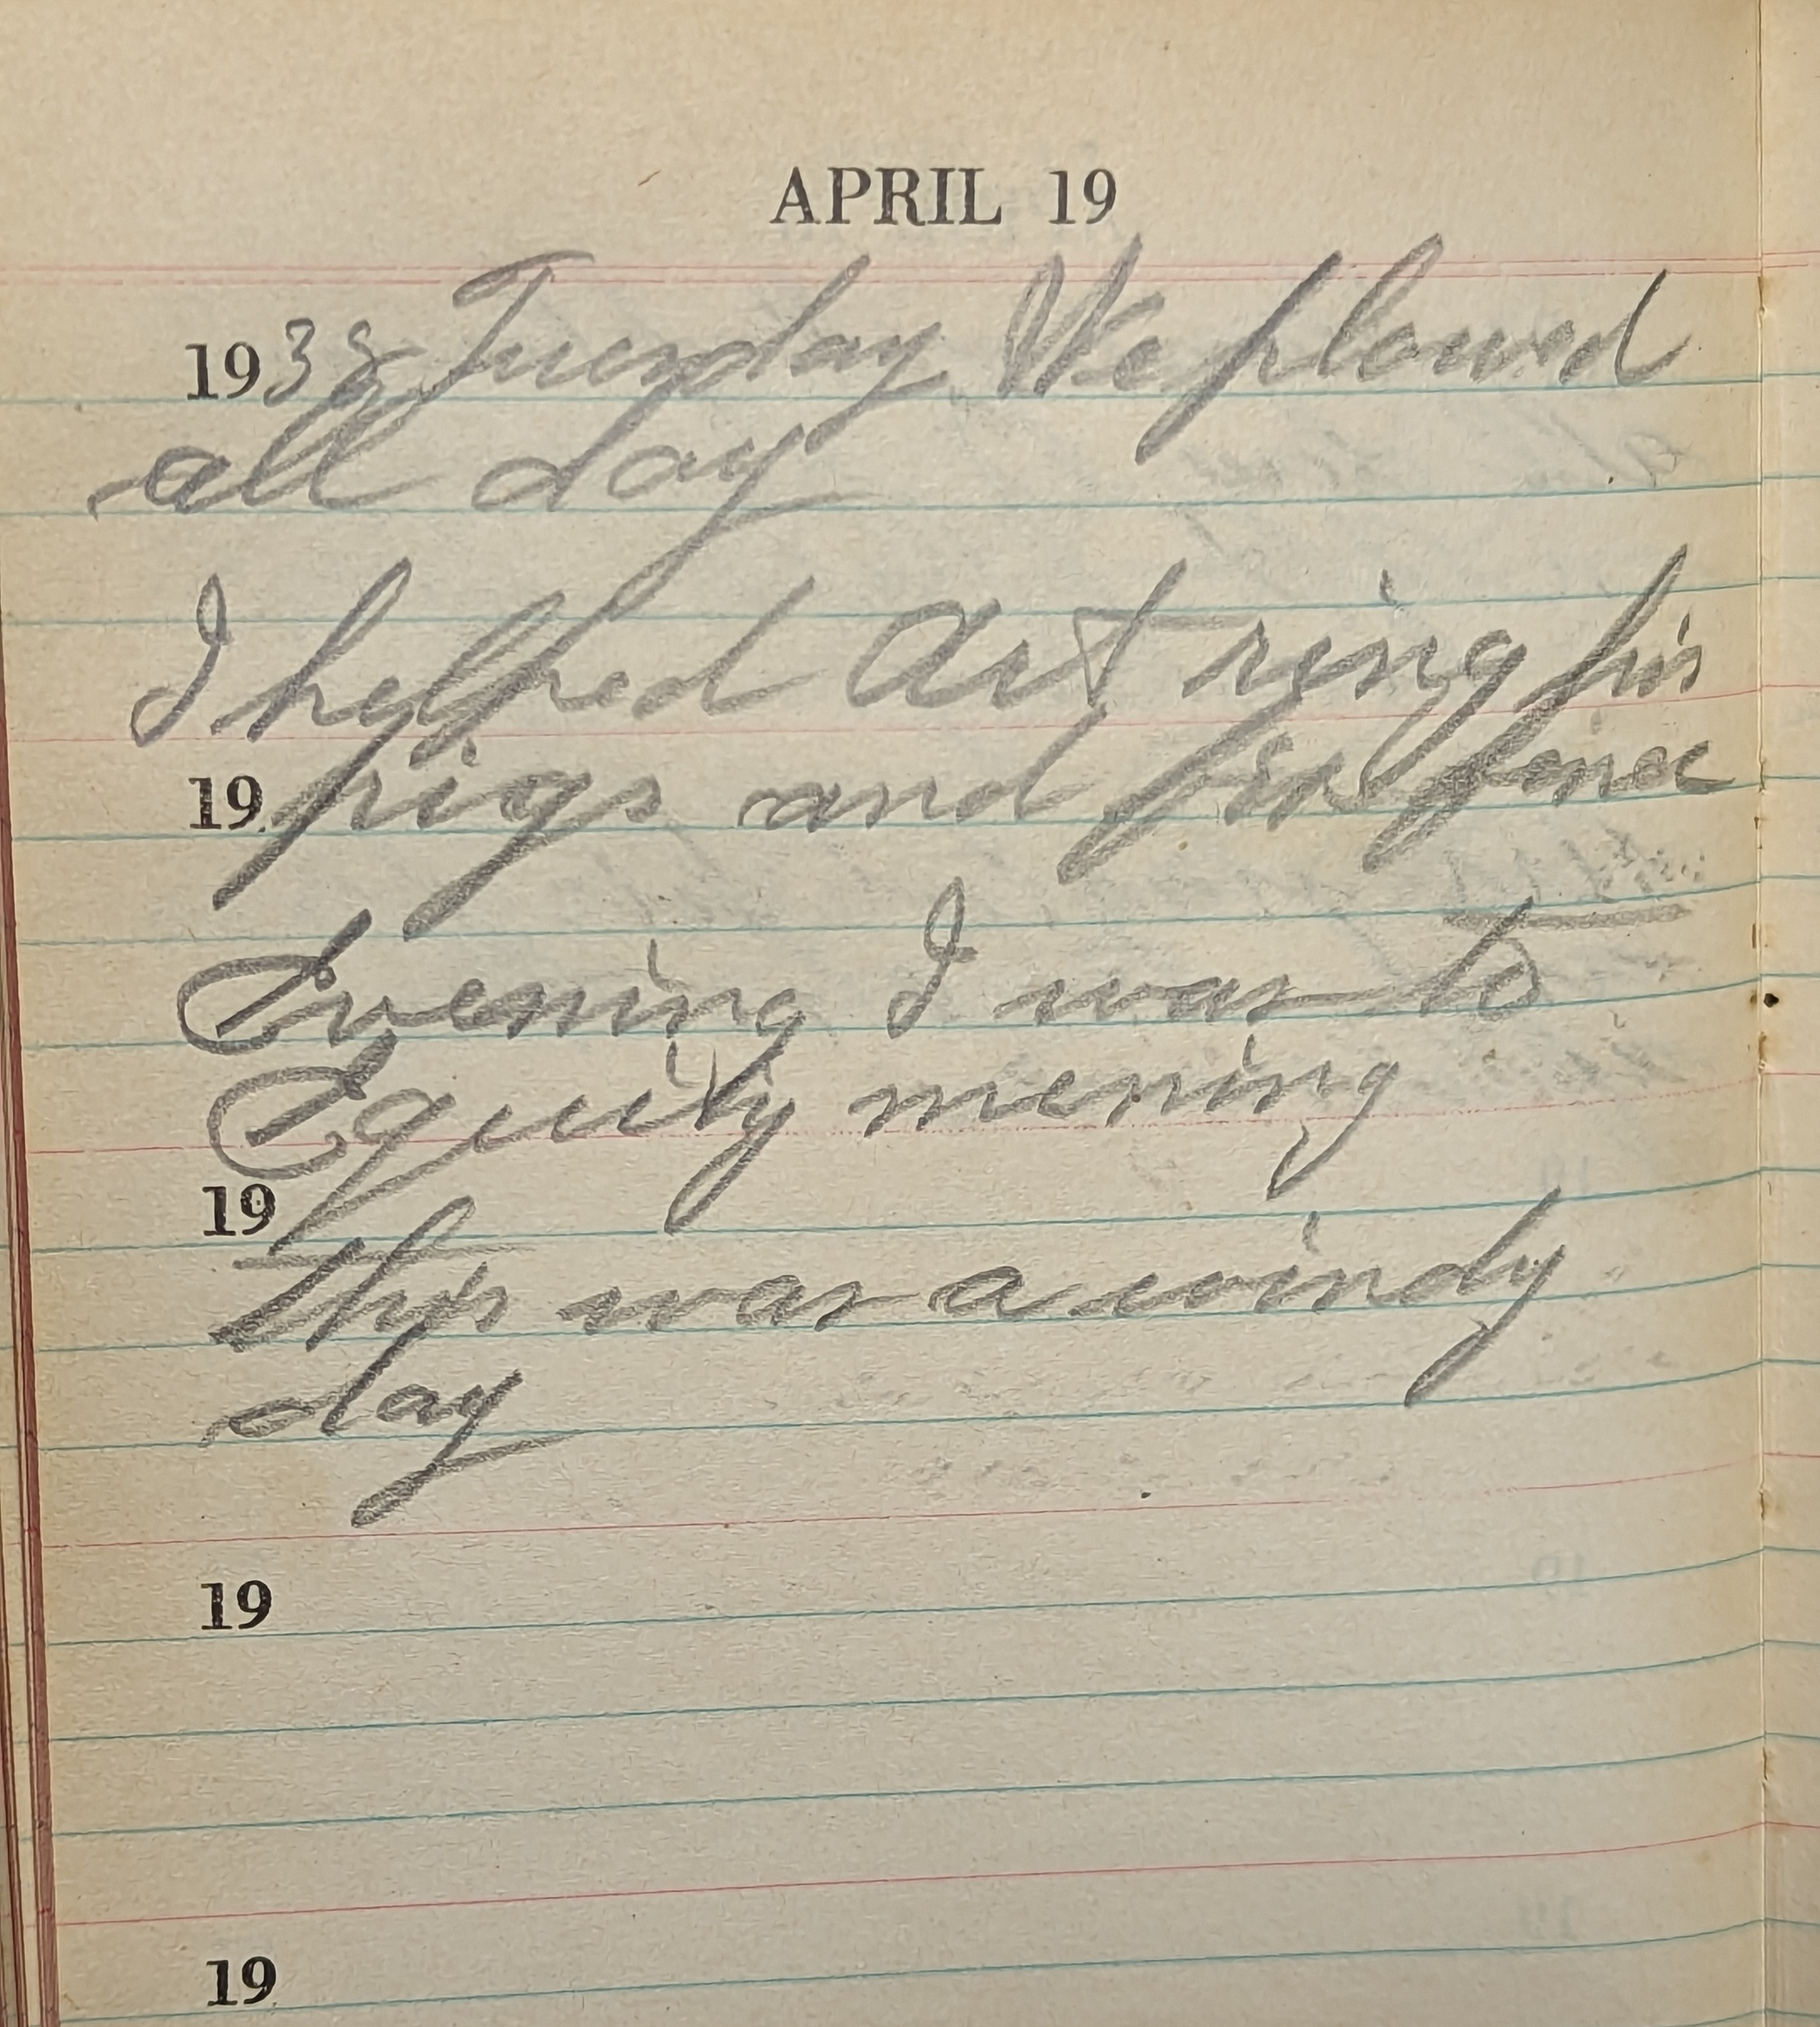 APRIL 19
1938 Tuesday We plowed
all day
I helped Art ring his
19 pigs and fix fence
Evening I was to
Equity mening
19
this was a windy
day
19
19